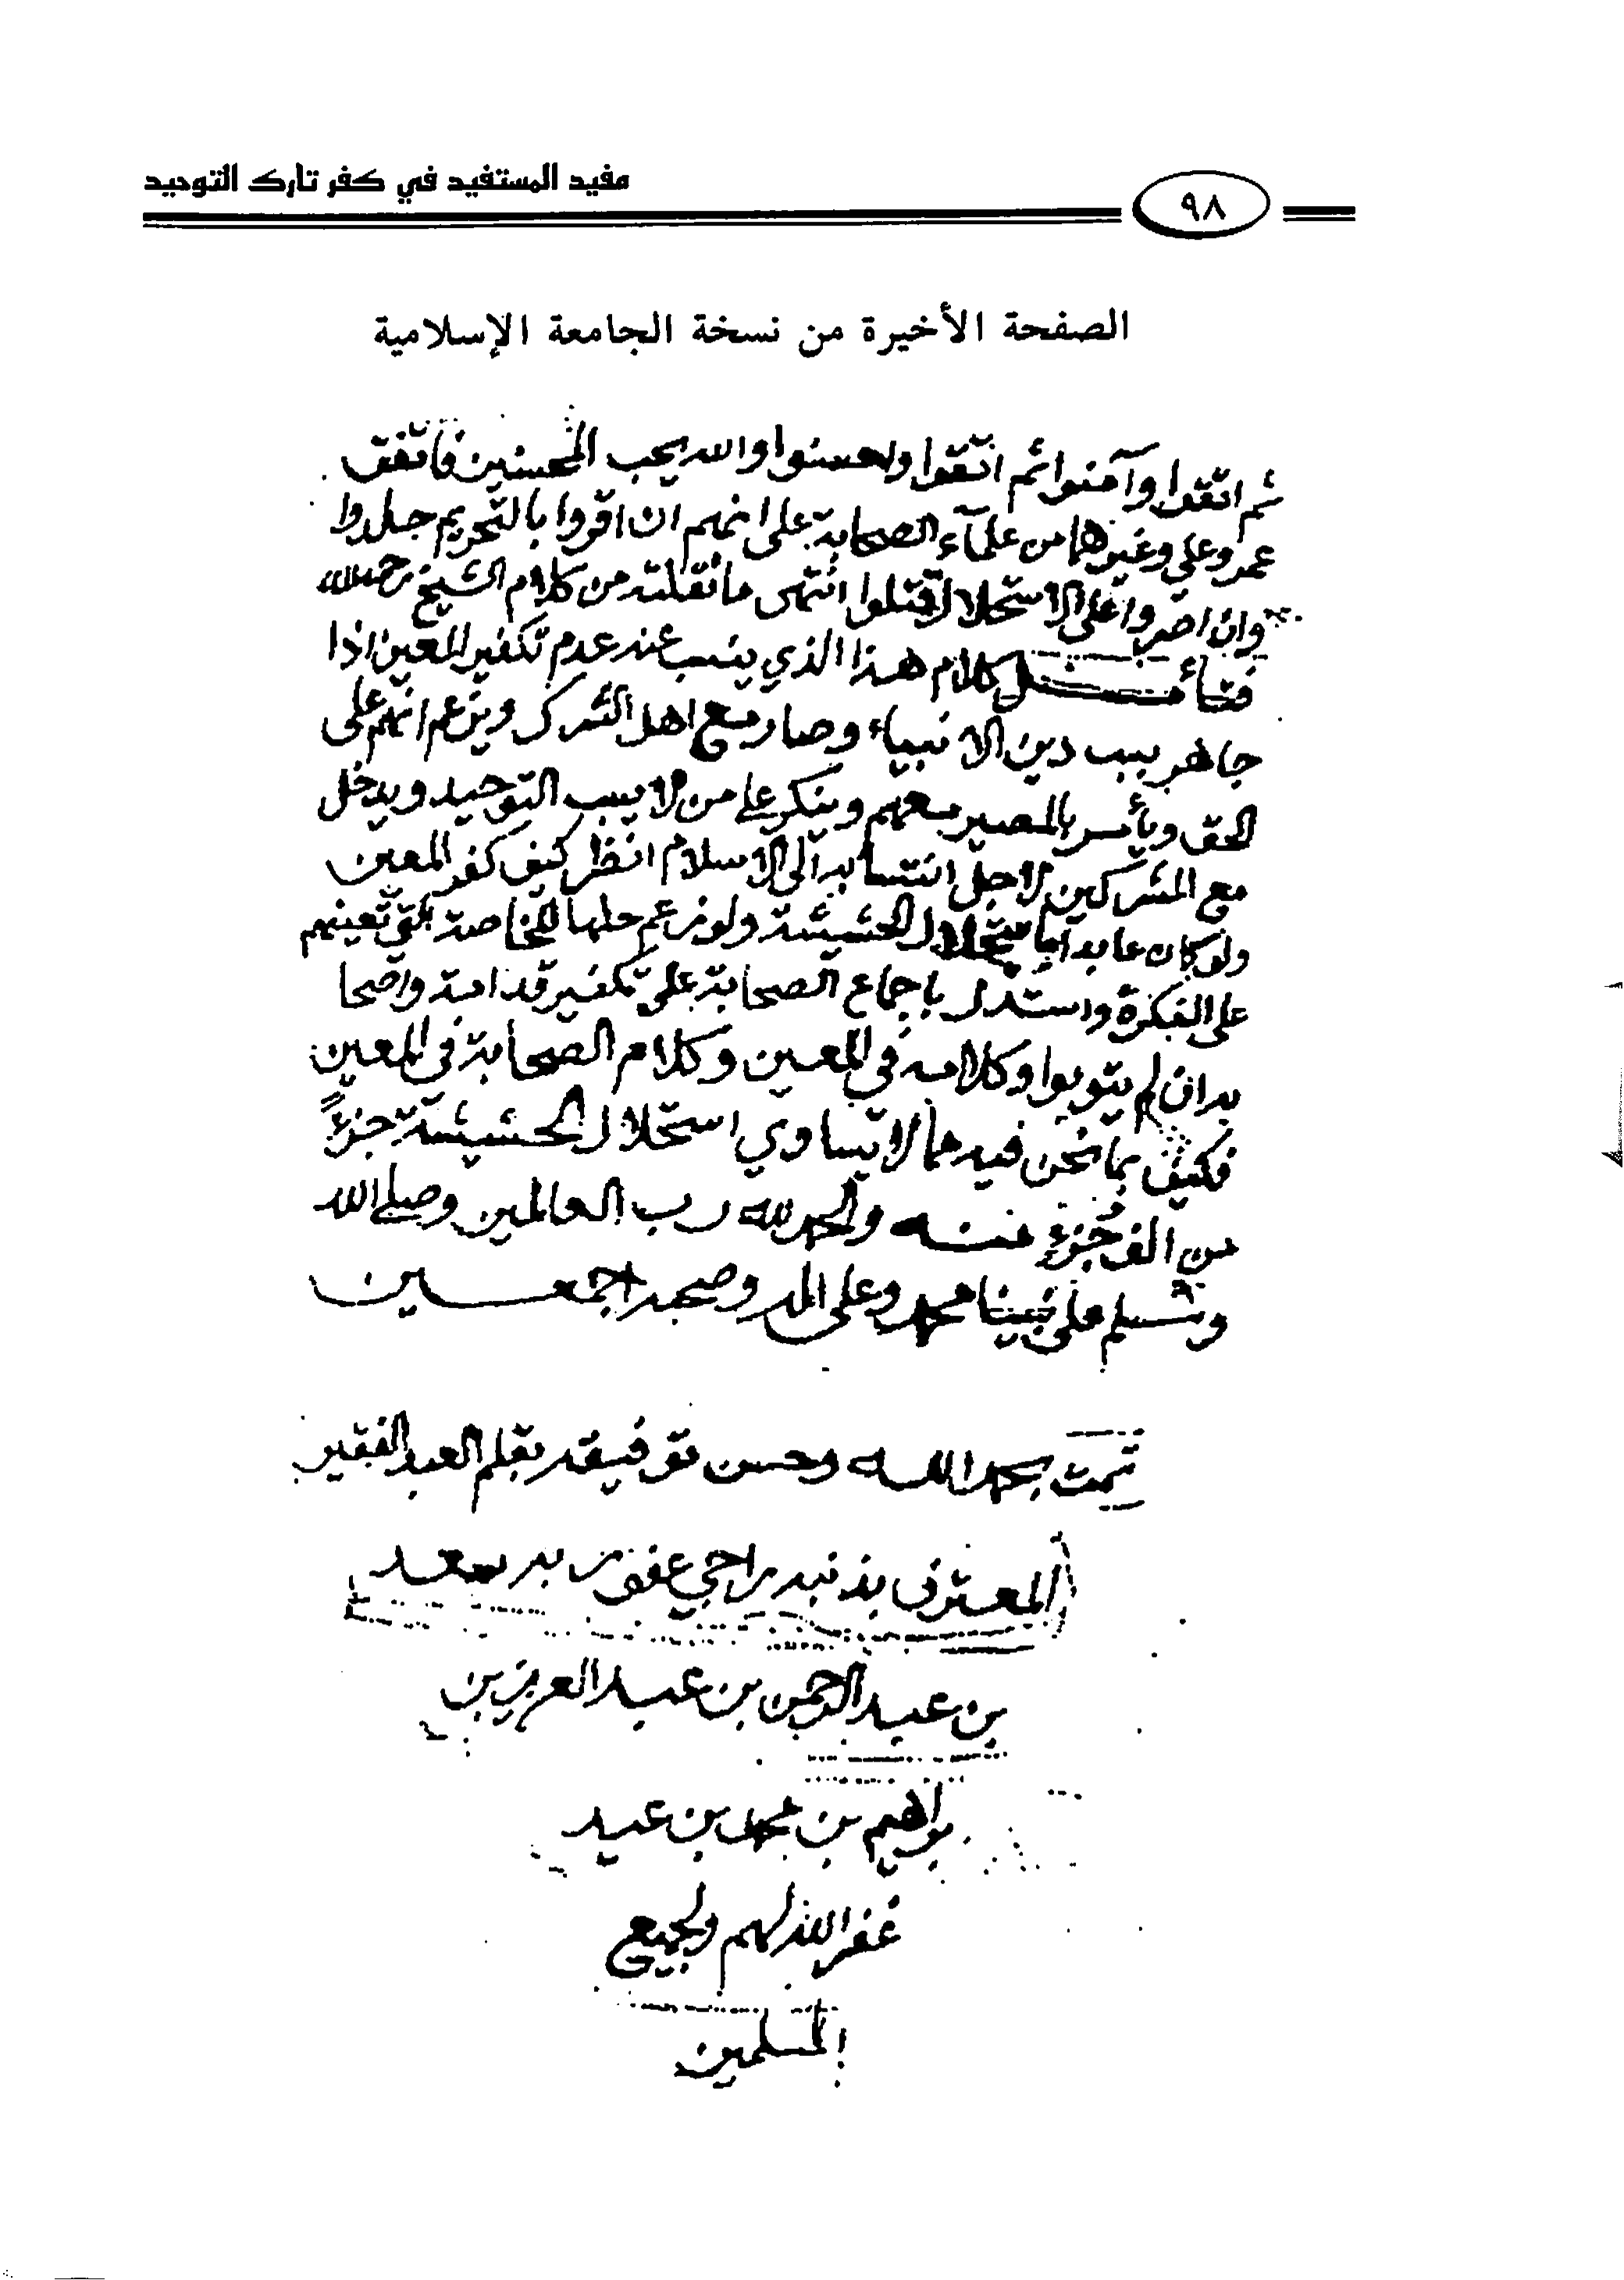 مفيد المستفيد في كفر تارك التوحيد
٩٨
الصفحة الأخيرة من نسخة الجامعة الإسلامية
ثم اتقوا وآمنوا ثم اتقوا واحسنوا والله يحب المحسنين فاتفق
عمر وعلي وغيرهما من علمآء الصحابة على انهم ان اقروا بالتحريم جلدوا
وان اصروا على الاستحلال قتلوا انتهى ما نقلته من كلام الشيخ رحمه الله
فتأمل كلام هذا الذي ينسب عنه عدم تكفير المعين اذا
جاهر بسب دين الانبياء وصار مع اهل الشرك ويزعم انهم على
الحق ويأمر بالمصير معهم وينكر على من لا يسب التوحيد ويدخل
مع المشركين لاجل انتسابه الى الاسلام انظر كيف كفر المعين
ولو كان عابدا باستحلال الحشيشة ولو زعم حلها للخاصة التي تعينهم
على الفكرة واستدل باجماع الصحابة على تكفير قدامة واصحا
به ان لم يتوبوا وكلامه في المعين وكلام الصحابة في المعين
فكيف بما نحن فيه مما لا يساوي استحلال الحشيشة جزءً
من الف جزء منه والحمد لله رب العالمين وصلى الله
وسلم على نبينا محمد وعلى اله وصحبه اجمعين
تمت بحمد الله وحسن توفيقه بقلم العبد الفقير
المعترف بذنبه راجي عفو ربه سعد
بن عبد الرحمن بن عبد العزيز بن
براهيم بن محمد بن عبيد
غفر الله لهم ولجميع
المسلمين